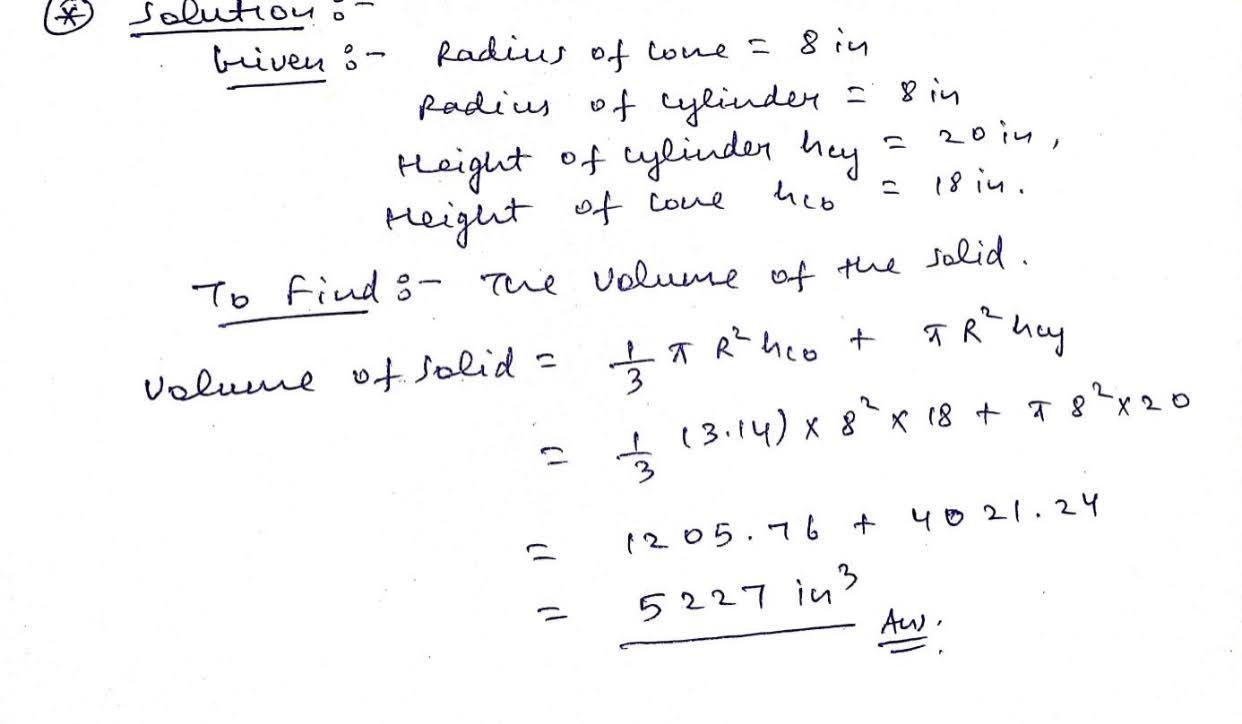 * Solution :-
Given :- Radius of cone = 8 in
Radius of cylinder = 8 in
Height of cylinder hcy = 20 in,
Height of cone hco = 18 in.
To Find :- The volume of the solid.
Volume of solid = 1/3 π R² hco + π R² hcy
= 1/3 (3.14) × 8² × 18 + π 8² × 20
= 1205.76 + 4021.24
= 5227 in³ Ans.